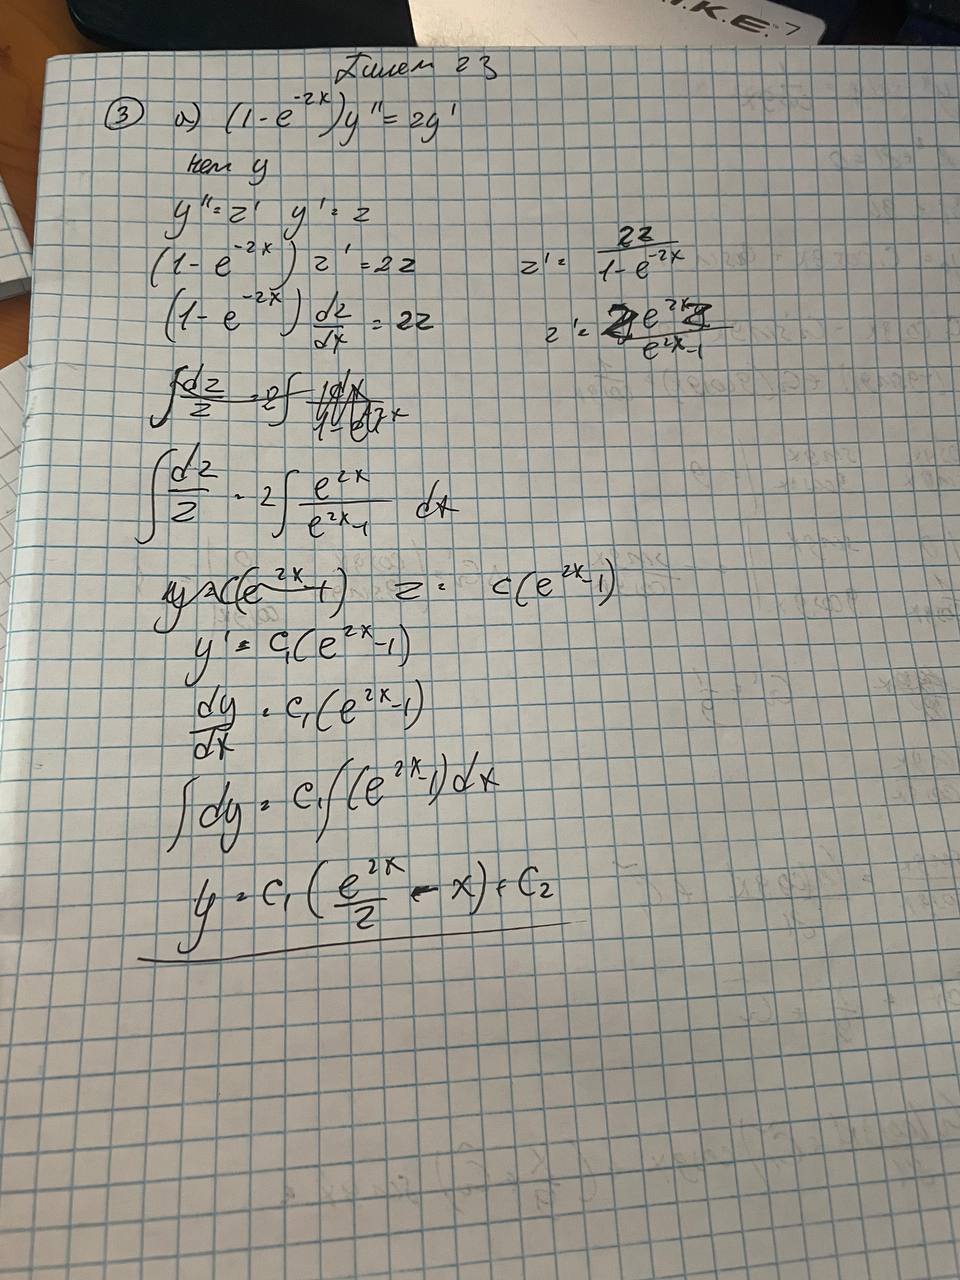 .K.E:7
Билет 23
③ а) (1-e^{-2x})y''=2y'
нет y
y''=z' y'=z
(1-e^{-2x}) z'=2z z'=\frac{2z}{1-e^{-2x}}
(1-e^{-2x}) \frac{dz}{dx}=2z z'=\frac{2e^{2x}z}{e^{2x}-1}
∫\frac{dz}{z}=2∫
∫\frac{dz}{z}=2∫\frac{e^{2x}}{e^{2x}-1} dx
y=C(e^{2x}-1) z= c(e^{2x}-1)
y'=C₁(e^{2x}-1)
\frac{dy}{dx}=C₁(e^{2x}-1)
∫dy=C₁∫(e^{2x}-1)dx
y=C₁(\frac{e^{2x}}{2}-x)+C₂